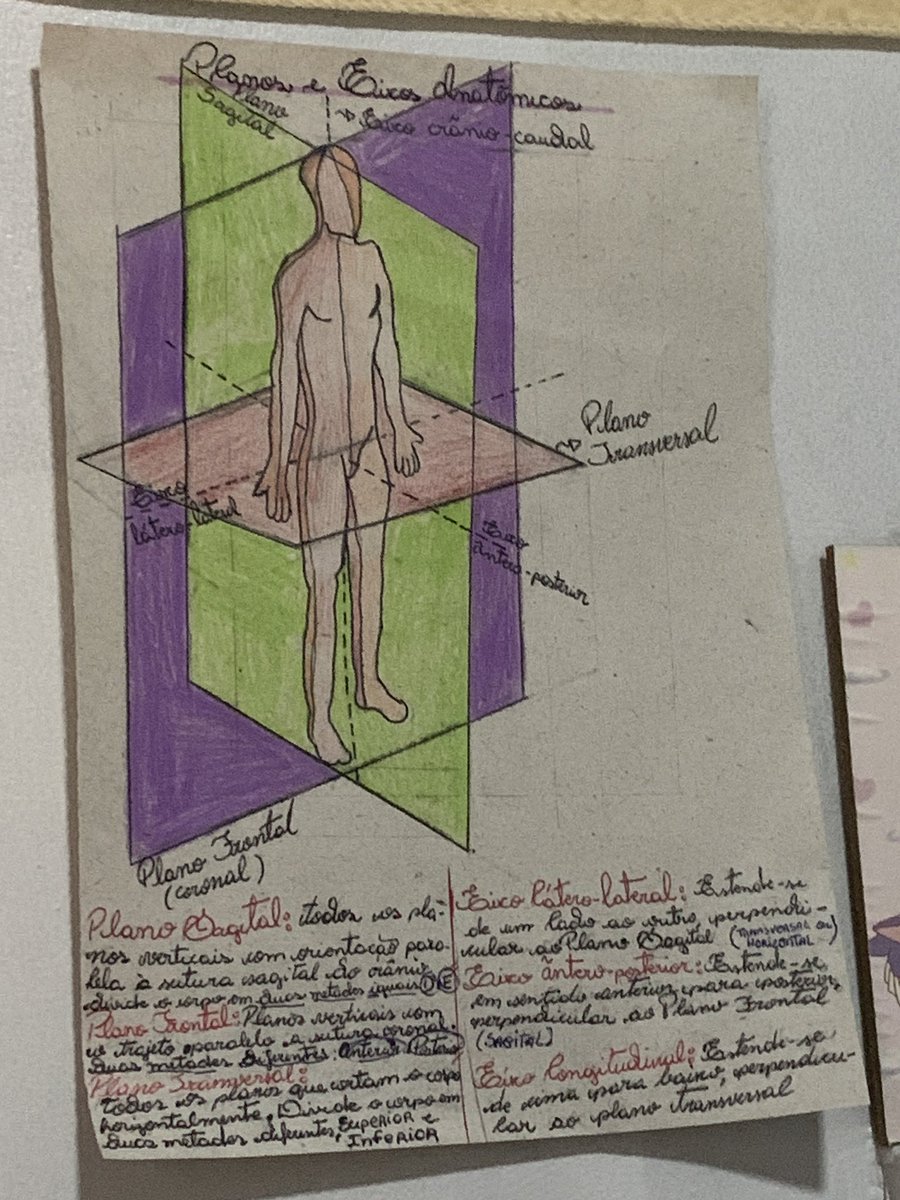 Planos e Eixos Anatômicos
Plano
Sagital
Eixo crânio-caudal
Plano
Transversal
Eixo
látero-lateral
Eixo
ântero-posterior
Plano Frontal
(coronal)
Plano Sagital: todos os pla-
nos verticais com orientação para-
lela à sutura sagital do crânio
divide o corpo em duas metades iguais D E
Plano Frontal: Planos verticais com
o trajeto paralelo a sutura coronal.
Duas metades diferentes: Anterior Poster
Plano Transversal:
todos os planos que cortam o corpo
horizontalmente, Divide o corpo em
duas metades diferentes, SUPERIOR e
INFERIOR
Eixo látero-lateral: Estende-se
de um lado ao outro, perpendi-
cular ao Plano Sagital (TRANSVERSAL OU
HORIZONTAL
Eixo ântero-posterior: Estende-se,
em sentido anterior para posterior,
perpendicular ao Plano Frontal
(SAGITAL)
Eixo longitudinal: Estende-se
de cima para baixo, perpendicu-
lar ao plano transversal